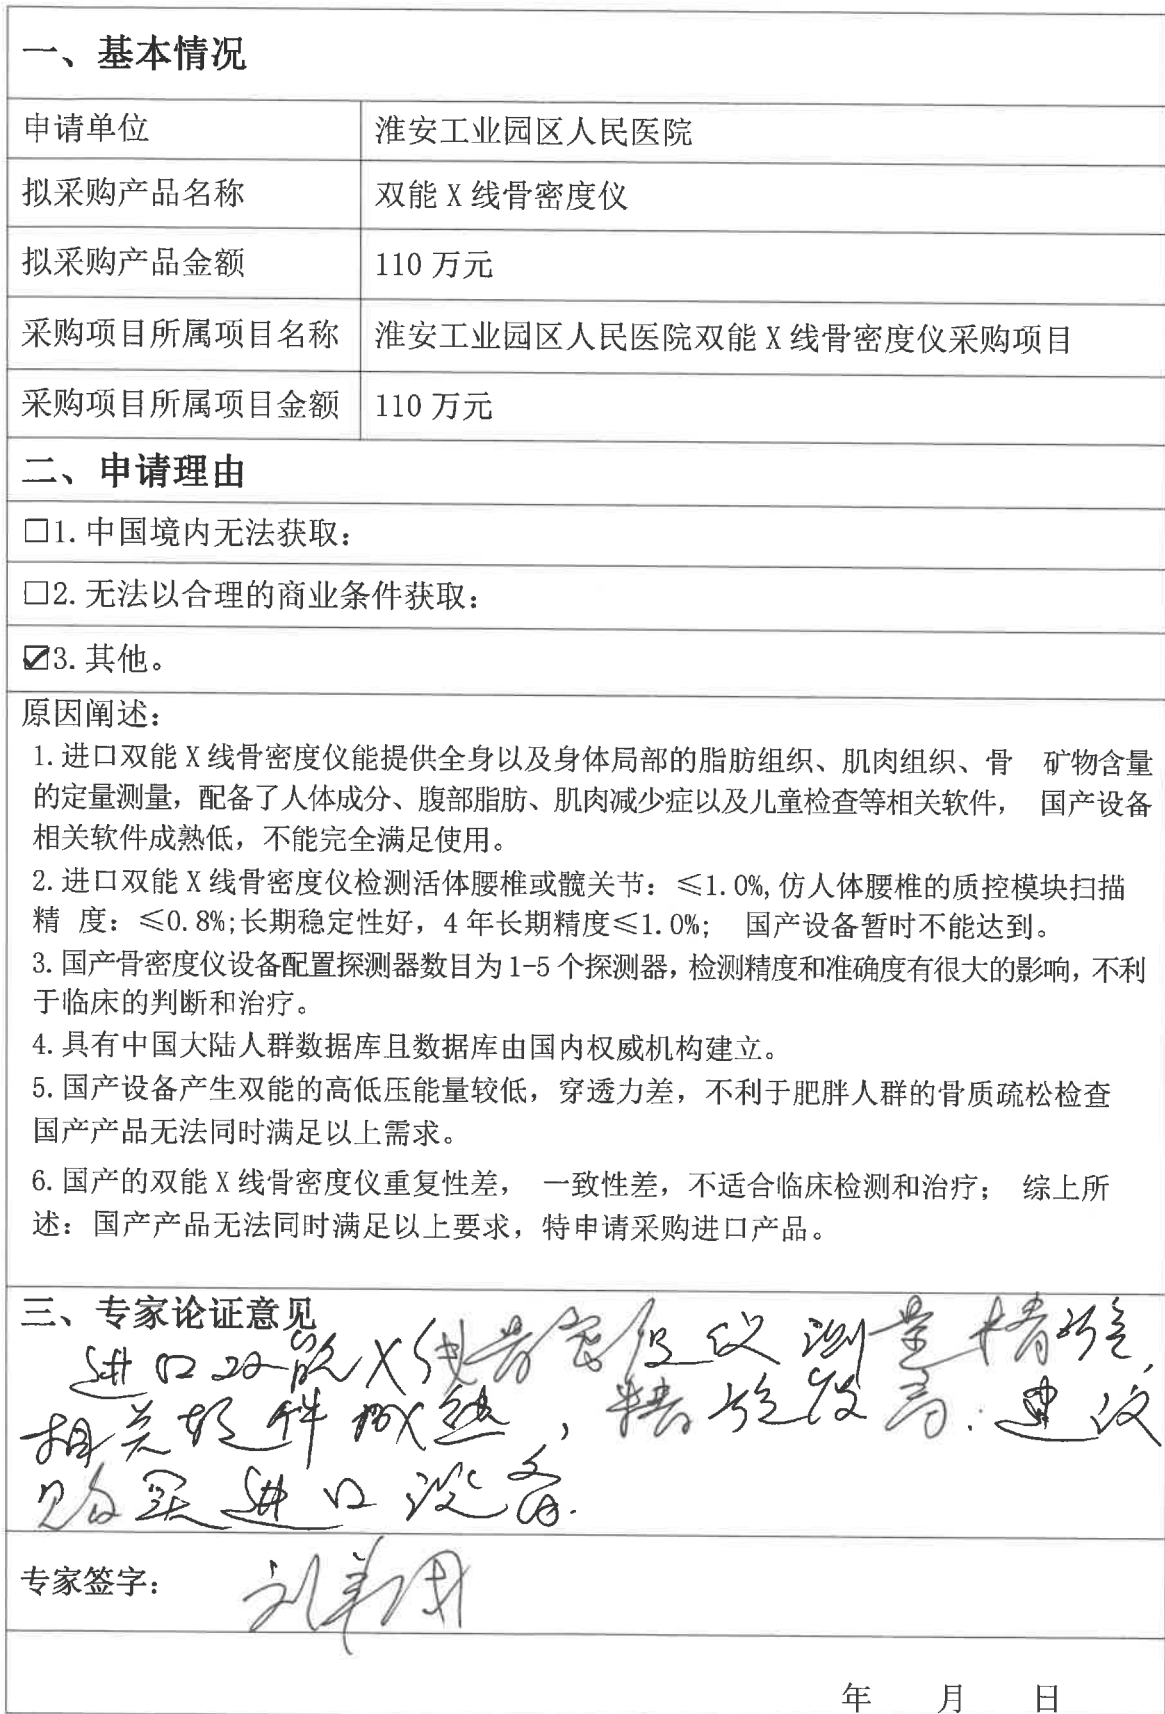 一、基本情况
申请单位 淮安工业园区人民医院
拟采购产品名称 双能 X 线骨密度仪
拟采购产品金额 110 万元
采购项目所属项目名称 淮安工业园区人民医院双能 X 线骨密度仪采购项目
采购项目所属项目金额 110 万元
二、申请理由
☐1. 中国境内无法获取：
☐2. 无法以合理的商业条件获取：
☑3. 其他。
原因阐述：
1. 进口双能 X 线骨密度仪能提供全身以及身体局部的脂肪组织、肌肉组织、骨 矿物含量
的定量测量，配备了人体成分、腹部脂肪、肌肉减少症以及儿童检查等相关软件， 国产设备
相关软件成熟低，不能完全满足使用。
2. 进口双能 X 线骨密度仪检测活体腰椎或髋关节：≤1.0%,仿人体腰椎的质控模块扫描
精 度：≤0.8%;长期稳定性好，4 年长期精度≤1.0%； 国产设备暂时不能达到。
3. 国产骨密度仪设备配置探测器数目为 1-5 个探测器，检测精度和准确度有很大的影响，不利
于临床的判断和治疗。
4. 具有中国大陆人群数据库且数据库由国内权威机构建立。
5. 国产设备产生双能的高低压能量较低，穿透力差，不利于肥胖人群的骨质疏松检查
国产产品无法同时满足以上需求。
6. 国产的双能 X 线骨密度仪重复性差， 一致性差，不适合临床检测和治疗； 综上所
述：国产产品无法同时满足以上要求，特申请采购进口产品。
三、专家论证意见
进口双能X线骨密度仪测量精确，
相关软件成熟，精确度高．建议
购买进口设备．
专家签字：
年 月 日